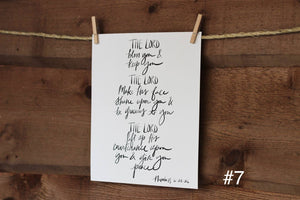 THE LORD
bless you &
keep you
THE LORD
Make his face
shine upon you &
be gracious to you
THE LORD
lift up his
countenance upon
you & give you
peace
Numbers 6:24-26
#7